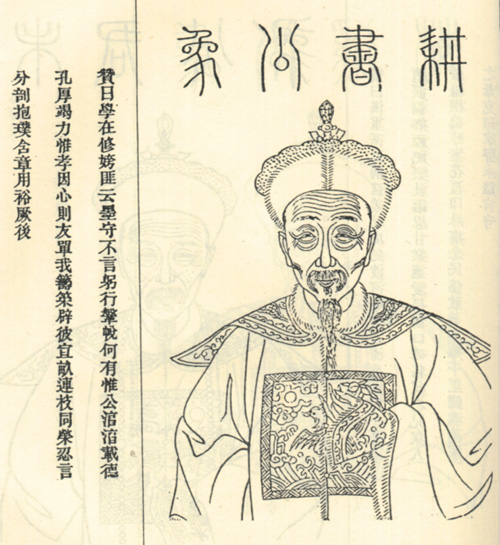 耕書公象
贊曰學在修姱匪云墨守不言躬行鞶帨何有惟公載德
孔厚竭力惟孝因心則友單我籌策辟彼宜畝連枝同榮忍言
分剖抱璞含章用裕厥後